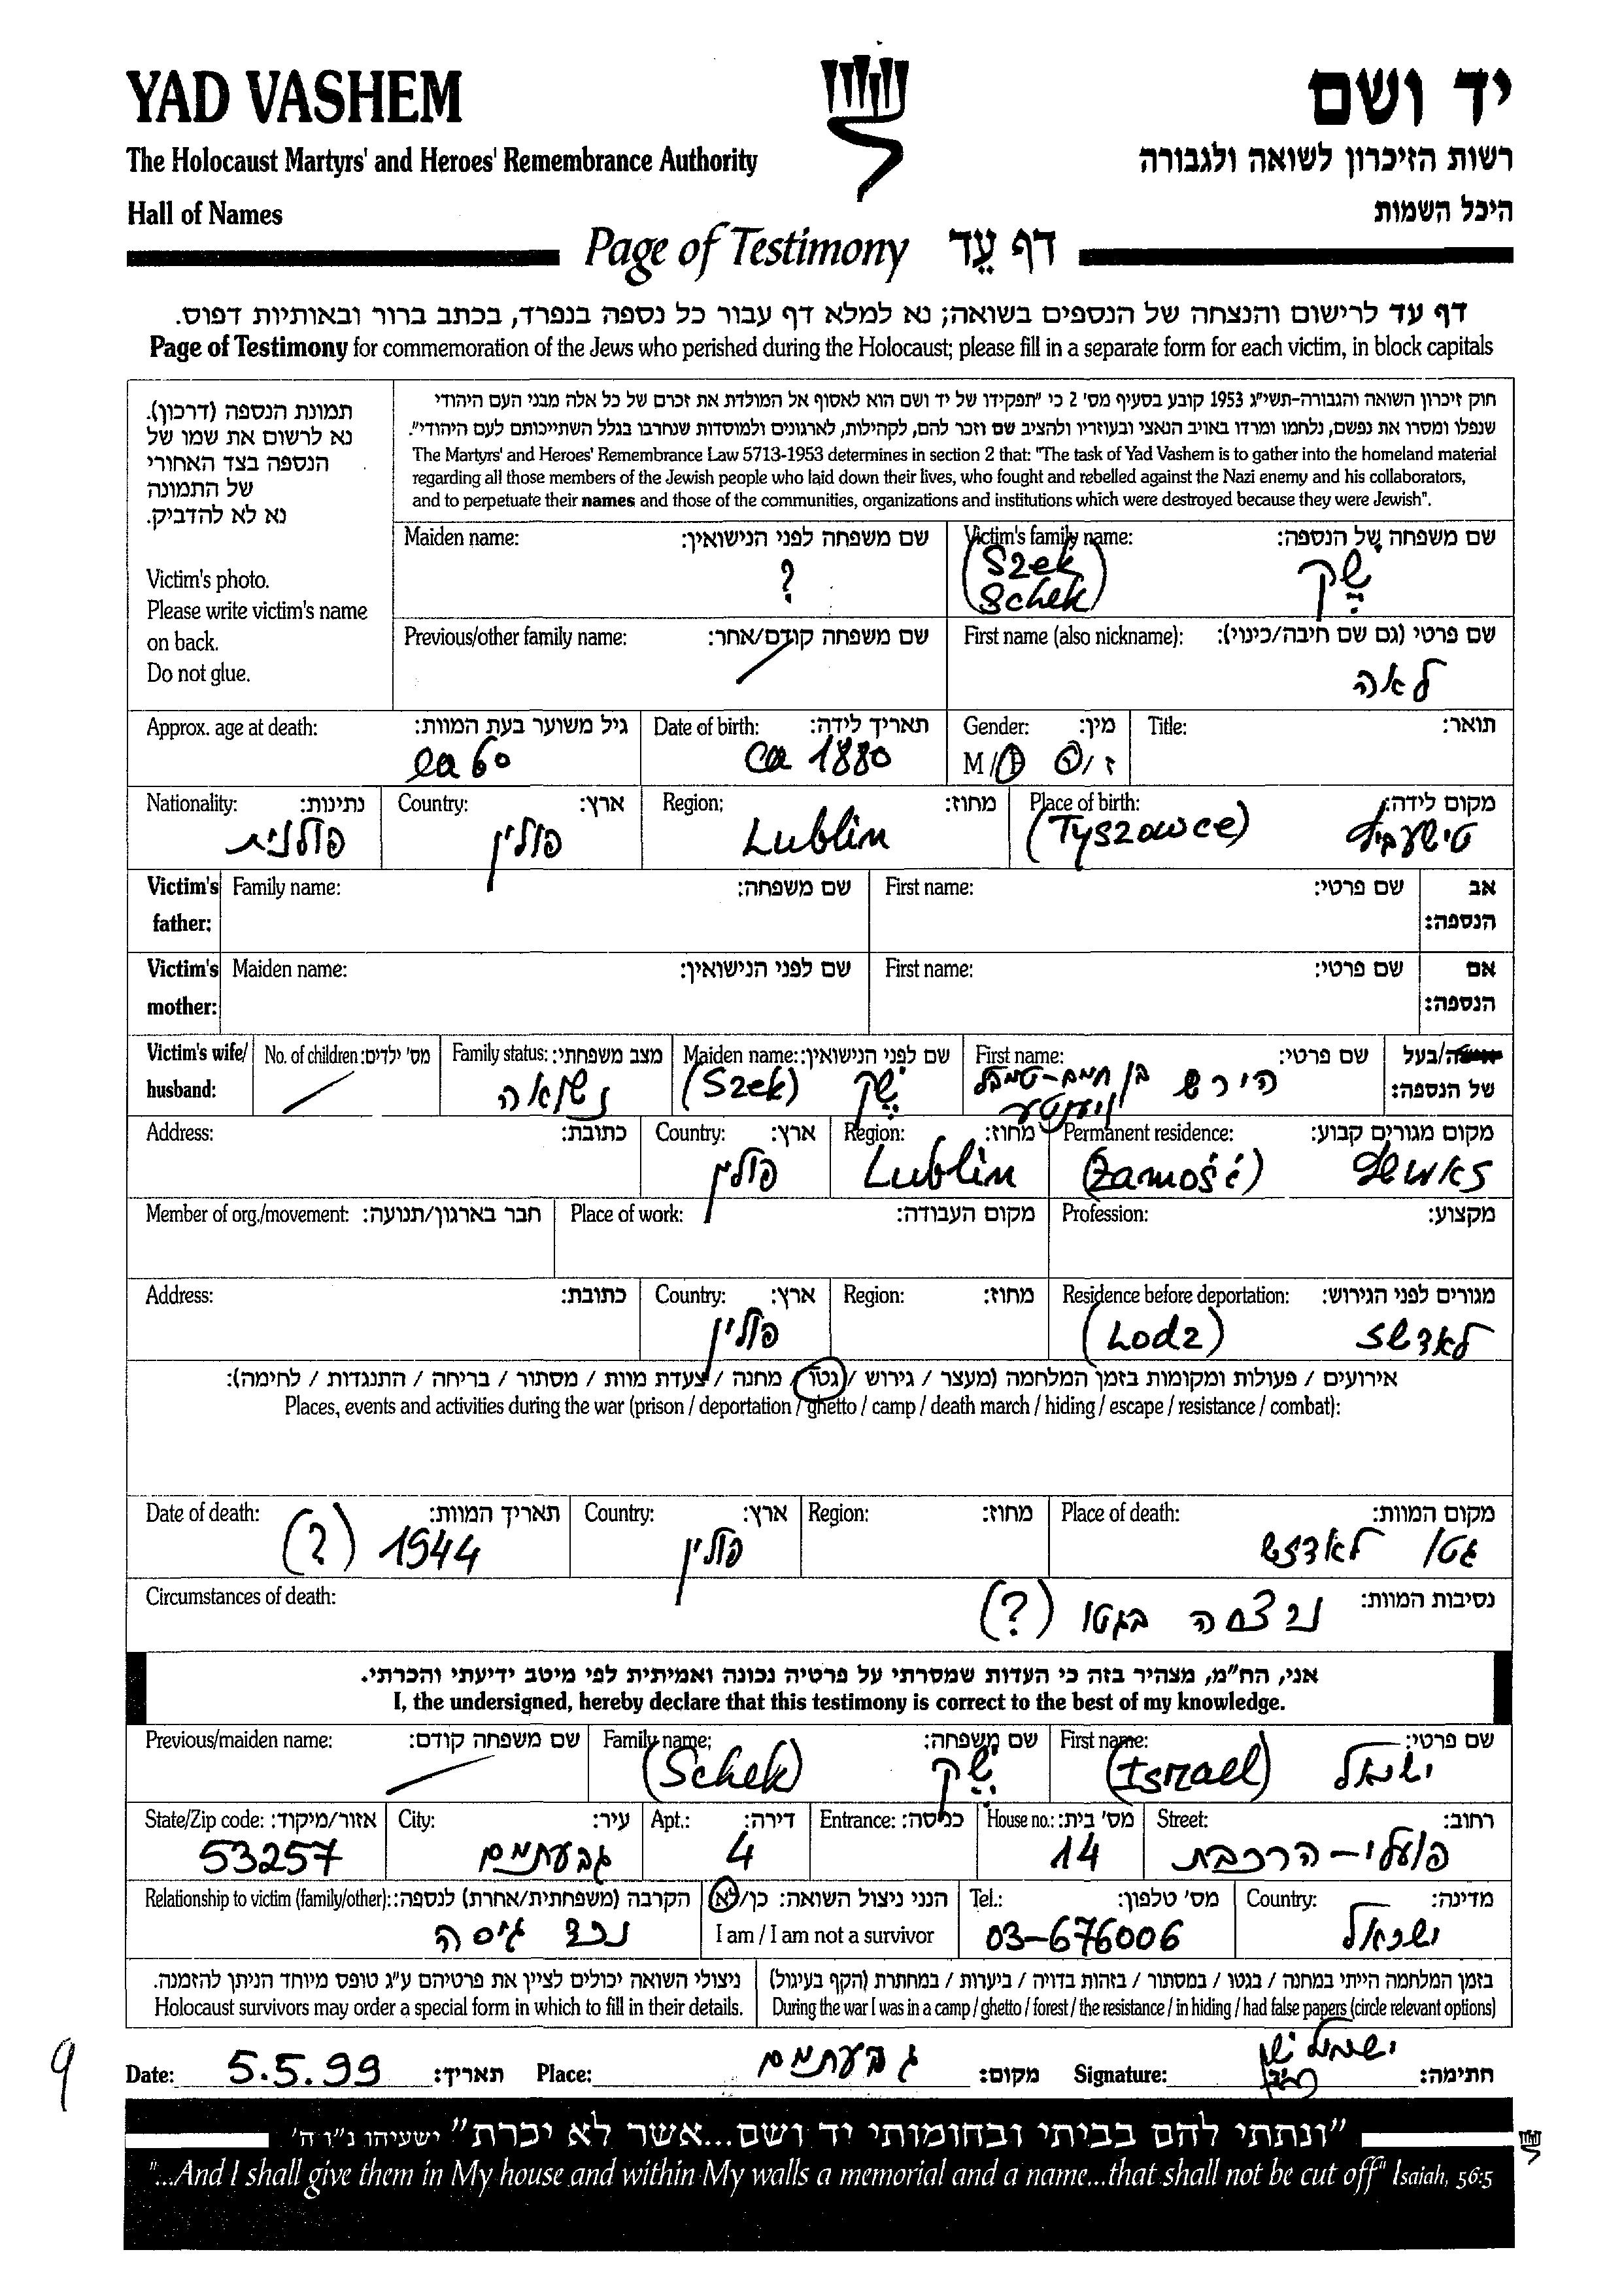 YAD VASHEM
יד ושם
The Holocaust Martyrs' and Heroes' Remembrance Authority
רשות הזיכרון לשואה ולגבורה
Hall of Names
היכל השמות
Page of Testimony דף עֵד
דף עד לרישום והנצחה של הנספים בשואה; נא למלא דף עבור כל נספה בנפרד, בכתב ברור ובאותיות דפוס.
Page of Testimony for commemoration of the Jews who perished during the Holocaust; please fill in a separate form for each victim, in block capitals
תמונת הנספה (דרכון).
נא לרשום את שמו של
הנספה בצד האחורי
של התמונה
נא לא להדביק.
Victim's photo.
Please write victim's name
on back.
Do not glue.
חוק זיכרון השואה והגבורה-תשי"ג 1953 קובע בסעיף מס' 2 כי "תפקידו של יד ושם הוא לאסוף אל המולדת את זכרם של כל אלה מבני העם היהודי
שנפלו ומסרו את נפשם, נלחמו ומרדו באויב הנאצי ובעוזריו ולהציב שם וזכר להם, לקהילות, לארגונים ולמוסדות שנחרבו בגלל השתייכותם לעם היהודי".
The Martyrs' and Heroes' Remembrance Law 5713-1953 determines in section 2 that: "The task of Yad Vashem is to gather into the homeland material
regarding all those members of the Jewish people who laid down their lives, who fought and rebelled against the Nazi enemy and his collaborators,
and to perpetuate their names and those of the communities, organizations and institutions which were destroyed because they were Jewish".
Maiden name: שם משפחה לפני הנישואין:
?
Victim's family name: שם משפחה של הנספה:
(Szek
Schek) שק
Previous/other family name: שם משפחה קודם/אחר:
First name (also nickname): שם פרטי (גם שם חיבה/כינוי):
לאה
Approx. age at death: גיל משוער בעת המוות:
ca 60
Date of birth: תאריך לידה:
ca 1880
Gender: מין:
M/F ז/נ
Title: תואר:
Nationality: נתינות:
פולנית
Country: ארץ:
פולין
Region: מחוז:
Lublin
Place of birth: מקום לידה:
(Tyszowce) טישעביץ
Victim's father: Family name: שם משפחה: First name: שם פרטי: אב הנספה:
Victim's mother: Maiden name: שם לפני הנישואין: First name: שם פרטי: אם הנספה:
Victim's wife/husband: No. of children: מס' ילדים: Family status: מצב משפחתי: Maiden name: שם לפני הנישואין: First name: שם פרטי: אשה/בעל של הנספה:
נשואה (Szek) שק הירש בן
Address: כתובת: Country: ארץ: Region: מחוז: Permanent residence: מקום מגורים קבוע:
פולין Lublin (Zamość) זאמושץ
Member of org./movement: חבר בארגון/תנועה: Place of work: מקום העבודה: Profession: מקצוע:
Address: כתובת: Country: ארץ: Region: מחוז: Residence before deportation: מגורים לפני הגירוש:
פולין (Lodz) לאדזש
אירועים / פעולות ומקומות בזמן המלחמה (מעצר / גירוש / גטו / מחנה / צעדת מוות / מסתור / בריחה / התנגדות / לחימה):
Places, events and activities during the war (prison / deportation / ghetto / camp / death march / hiding / escape / resistance / combat):
Date of death: תאריך המוות: Country: ארץ: Region: מחוז: Place of death: מקום המוות:
(?) 1944 פולין גטו לאדזש
Circumstances of death: נסיבות המוות:
נרצחה בגטו (?)
אני, הח"מ, מצהיר בזה כי העדות שמסרתי על פרטיה נכונה ואמיתית לפי מיטב ידיעתי והכרתי.
I, the undersigned, hereby declare that this testimony is correct to the best of my knowledge.
Previous/maiden name: שם משפחה קודם: Family name: שם משפחה: First name: שם פרטי:
(Schek) שק (Israel) ישראל
State/Zip code: אזור/מיקוד: City: עיר: Apt.: דירה: Entrance: כניסה: House no.: מס' בית: Street: רחוב:
53257 גבעתים 4 14 פועלי-הרכבת
Relationship to victim (family/other): הקרבה (משפחתית/אחרת) לנספה: הנני ניצול השואה: כן/לא Tel.: מס' טלפון: Country: מדינה:
נכד גיסה I am / I am not a survivor 03-676006 ישראל
ניצולי השואה יכולים לציין את פרטיהם ע"ג טופס מיוחד הניתן להזמנה.
Holocaust survivors may order a special form in which to fill in their details.
בזמן המלחמה הייתי במחנה / בגטו / במסתור / בזהות בדויה / ביערות / במחתרת (הקף בעיגול)
During the war I was in a camp / ghetto / forest / the resistance / in hiding / had false papers (circle relevant options)
9
Date: 5.5.99 תאריך: Place: גבעתים מקום: Signature: ישראל שק חתימה:
"ונתתי להם בביתי ובחומותי יד ושם...אשר לא יכרת" ישעיהו נ"ו ה'
"...And I shall give them in My house and within My walls a memorial and a name...that shall not be cut off" Isaiah, 56:5